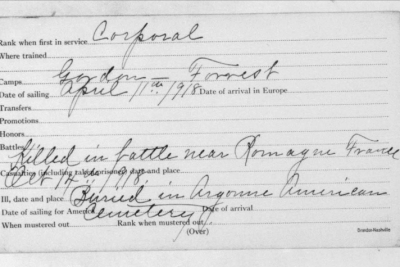 Rank when first in service Corporal
Where trained
Camps Gordon – Forrest
Date of sailing April 11th 1918 Date of arrival in Europe
Transfers
Promotions
Honors
Battles
Killed in battle near Romagne France
Casualties (including taken prisoner) date and place
Oct 14 1918
Ill, date and place Buried in Argonne American
Date of sailing for America Cemetery Date of arrival
When mustered out Rank when mustered out
(Over)
Brandon-Nashville